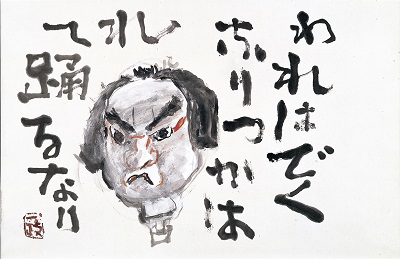 われはでく
なりつかは
れ
て踊るなり